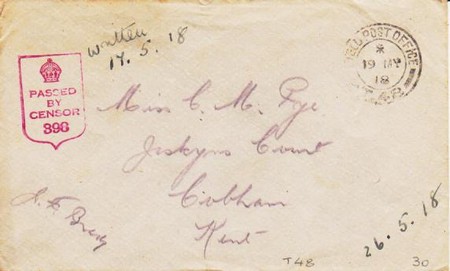 written
17.5.18
FIELD POST OFFICE
19 MY
18
T.48
PASSED
BY
CENSOR
396
Miss C. M. Pye
Jeskyns Court
Cobham
Kent
26.5.18
T48
30